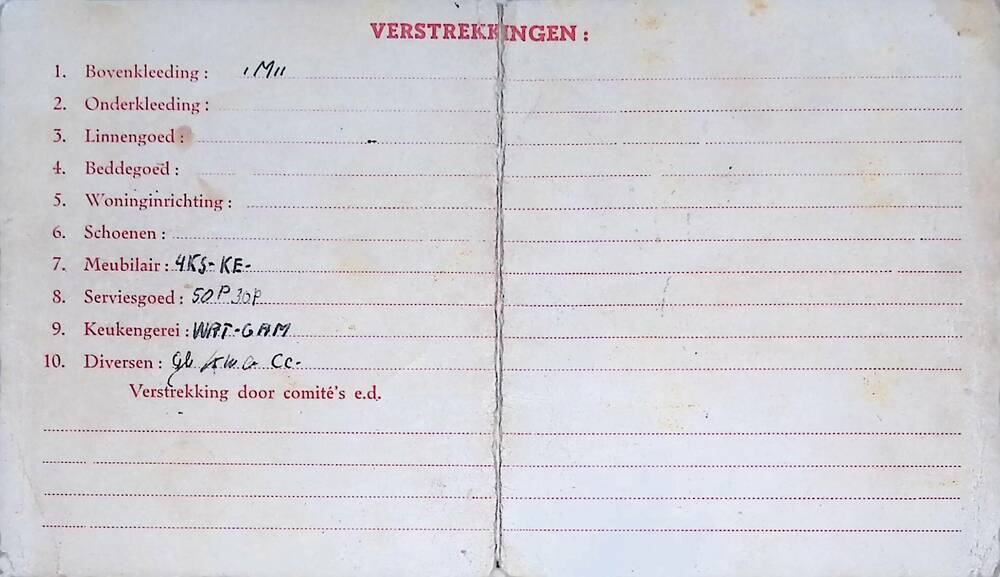 VERSTREKKINGEN:
1. Bovenkleeding:
2. Onderkleeding:
3. Linnengoed:
4. Beddegoed:
5. Woninginrichting:
6. Schoenen:
7. Meubilair: 4KS-KE-
8. Serviesgoed: 50P 30P
9. Keukengerei: WAT-GAM
10. Diversen: Cc-
Verstrekking door comité's e.d.